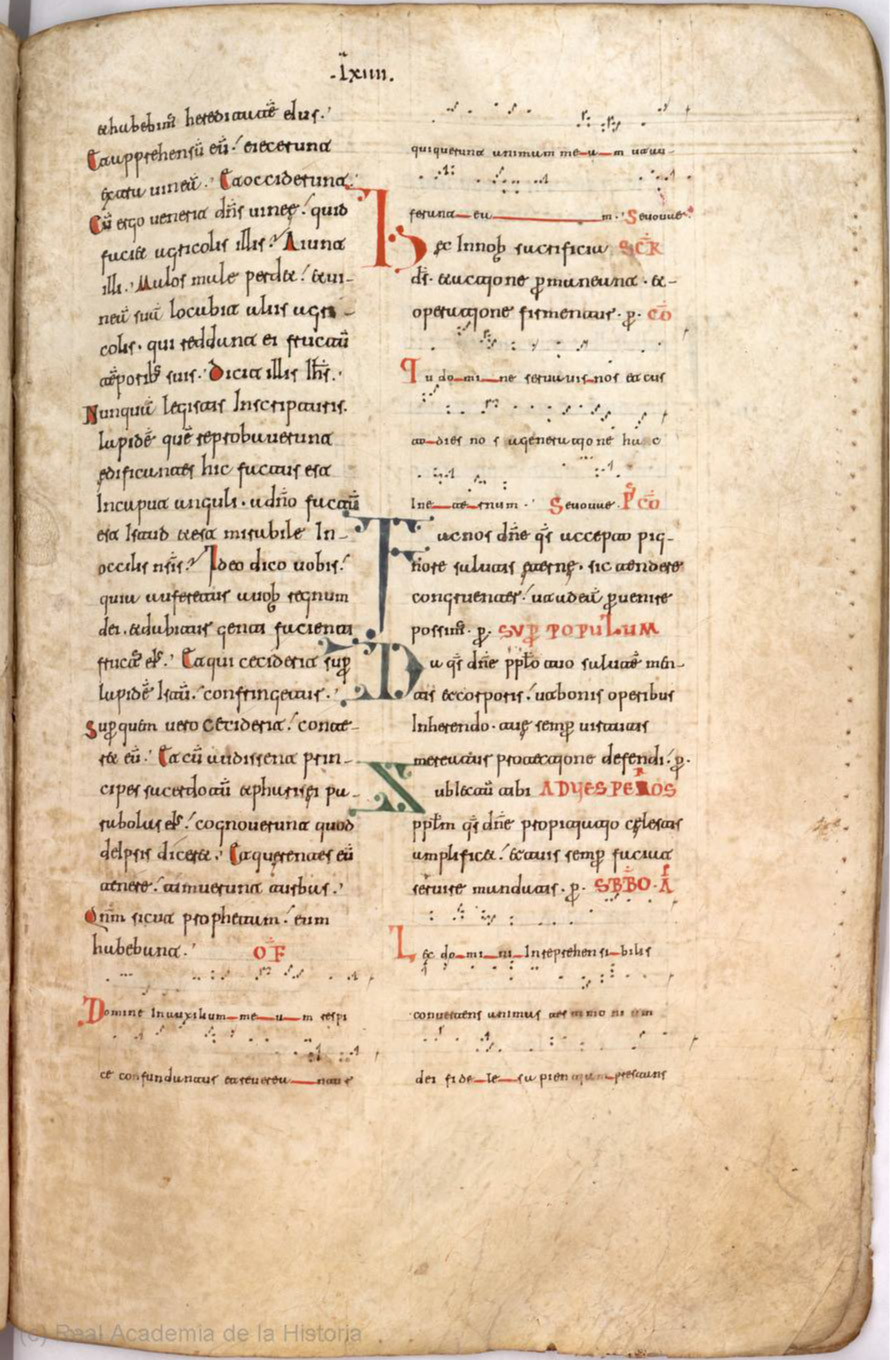 .lxiiii.
& habebim̄ hereditatē eius.
Et apprehensū eū eiecerunt
extra uineā. Et occiderunt.
Cū ergo uenerit dn̄s uineę quid
faciet agricolis illis? Aiunt
illi. Malos male perdet & ui-
neā suā locabit aliis agri-
colis. qui reddunt ei fructū
tēporib; suis. Dicit illis Ih̄s.
Nunquā legistis In scripturis.
lapidē quē reprobauerunt
ędificantes hic factus est
In caput anguli. a dn̄o factū
est istud & est mirabile In
occulis nr̄is? Ideo dico uobis
quia auferetur a uob̄ regnum
dei. & dabitur genti facienti
fructū ei'. Et qui ceciderit sup̄
lapidē istū. confringetur.
Sup̄ quem uero ceciderit conte-
ret eū. Et cū audissent prin-
cipes sacerdotū & pharisęi pa-
rabolas ei' cognouerunt quod
de ipsis diceret. Et querentes eū
tenere timuerunt turbas.
Qn̄m sicut prophetam eum
habebant. OF̄
Domine In auxilium me u m respi
ce confundantur et reuere antur
qui querunt animam me a m ut au
ferant ea m. Seuouae
Hęc In nob̄ sacrificia SCR̄
ds̄. & actione p̄maneant. &
operatione firmentur. p̄. CŌ
Tu do mi ne seruabis nos et cus
to dies no s a generatione ha c
In e te rnum. Seuouae. P̄ CŌ
Fac nos dn̄e qs̄ accepto pig-
nore salutis ęternę. sic tendere
congruenter ut ad eā p̄uenire
possim'. p̄. SUP̄ POPULUM
Da qs̄ dn̄e pplō tuo salutē men-
tis & corporis ut bonis operibus
Inherendo. tuę semp̄ uirtutis
mereatur protectione defendi. p̄.
Subiectū tibi AD VESPEROS
pplm̄ qs̄ dn̄e propiciatio cęlestis
amplificet & tuis semp̄ faciat
seruire mandatis. p̄. SBBO. Ā
Lex do mi ni Inreprehensi bilis
conuertens animas tes ti mo ni um
dei fi de le sa pientiam prestans
(c) Real Academia de la Historia